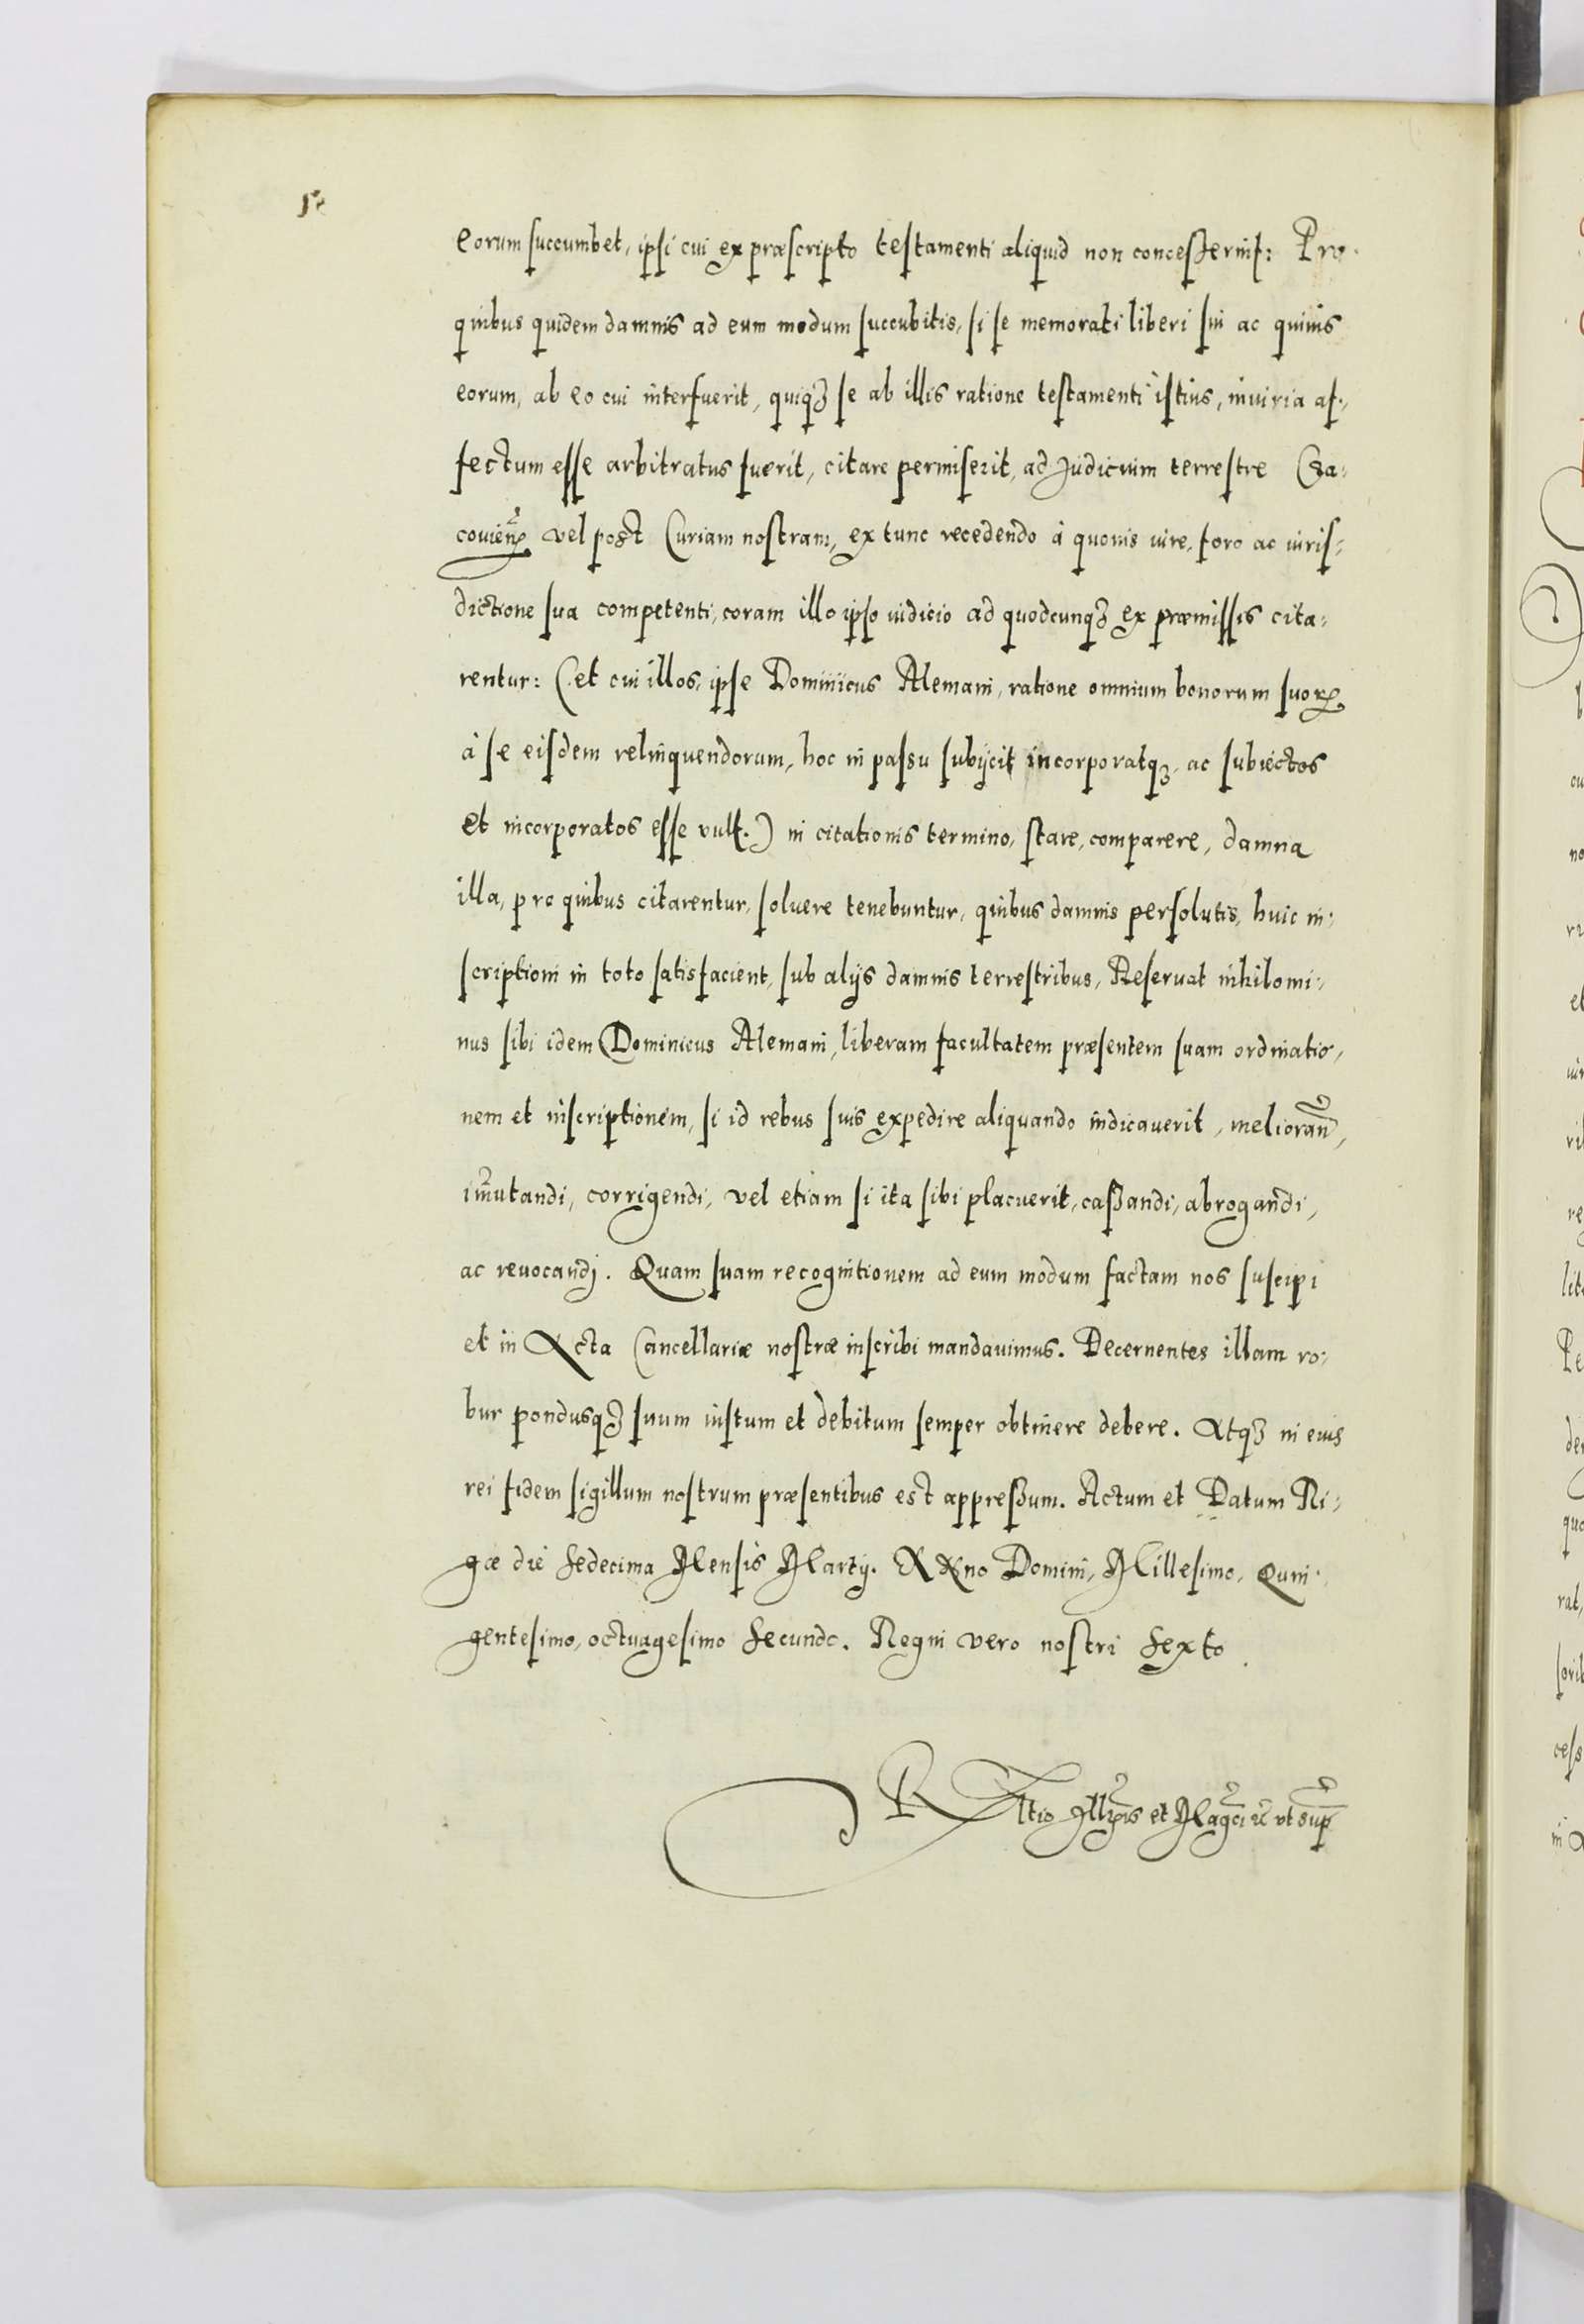 eorum succumbet, ipsi cui ex præscripto testamenti aliquid non concesserint: Pro
quibus quidem damnis ad eum modum succubitis, si se memorati liberi sui ac quiuis
eorum, ab eo cui interfuerit, quiqȝ se ab illis ratione testamenti istius, iniuria af-
fectum esse arbitratus fuerit, citare permiserit, ad Judicium terrestre Cra-
couieñ vel post Curiam nostram, ex tunc recedendo à quouis iure, foro ac iuris-
dictione sua competenti, coram illo ipso iudicio ad quodcunqȝ ex præmissis cita-
rentur: (et cui illos, ipse Dominicus Alemani, ratione omnium bonorum suorꝝ
à se eisdem relinquendorum, hoc in passu subijcit incorporatqȝ, ac subiectos
et incorporatos esse vult.) in citationis termino, stare, comparere, damna
illa, pro quibus citarentur, soluere tenebuntur, quibus damnis persolutis, huic in-
scriptioni in toto satisfacient, sub alijs damnis terrestribus, Reseruat nihilomi-
nus sibi idem Dominicus Alemani, liberam facultatem præsentem suam ordinatio-
nem et inscriptionem, si id rebus suis expedire aliquando iudicauerit, meliorañ,
im̃utandi, corrigendi, vel etiam si ita sibi placuerit, cassandi, abrogandi,
ac reuocandj. Quam suam recognitionem ad eum modum factam nos suscipi
et in Acta Cancellariæ nostræ inscribi mandauimus. Decernentes illam ro-
bur pondusqȝ suum iustum et debitum semper obtinere debere. Atqȝ in eius
rei fidem sigillum nostrum præsentibus est appressum. Actum et Datum Ri-
gæ die sedecima Mensis Martij. Anno Domini, Millesimo, Quin-
gentesimo, octuagesimo secundo. Regni vero nostri sexto.
Rltio Illr̃is et Magci r̃ ut sup̃